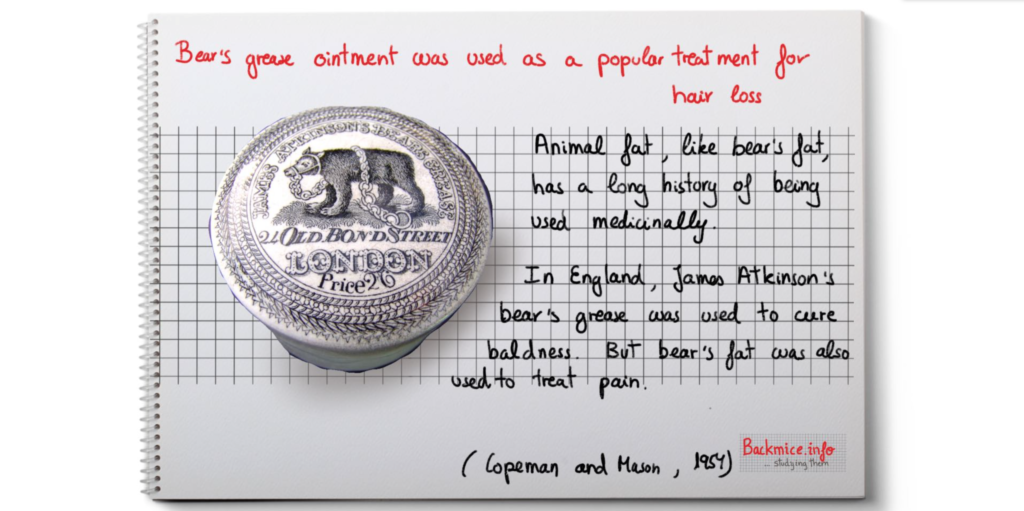 Bear's grease ointment was used as a popular treatment for
hair loss
JAMES ATKINSON'S BEAR'S GREASE
24 OLD BOND STREET
LONDON
Price 2/6
Animal fat, like bear's fat,
has a long history of being
used medicinally.
In England, James Atkinson's
bear's grease was used to cure
baldness. But bear's fat was also
used to treat pain.
(Copeman and Mason, 1954)
Backmice.info
... studying them